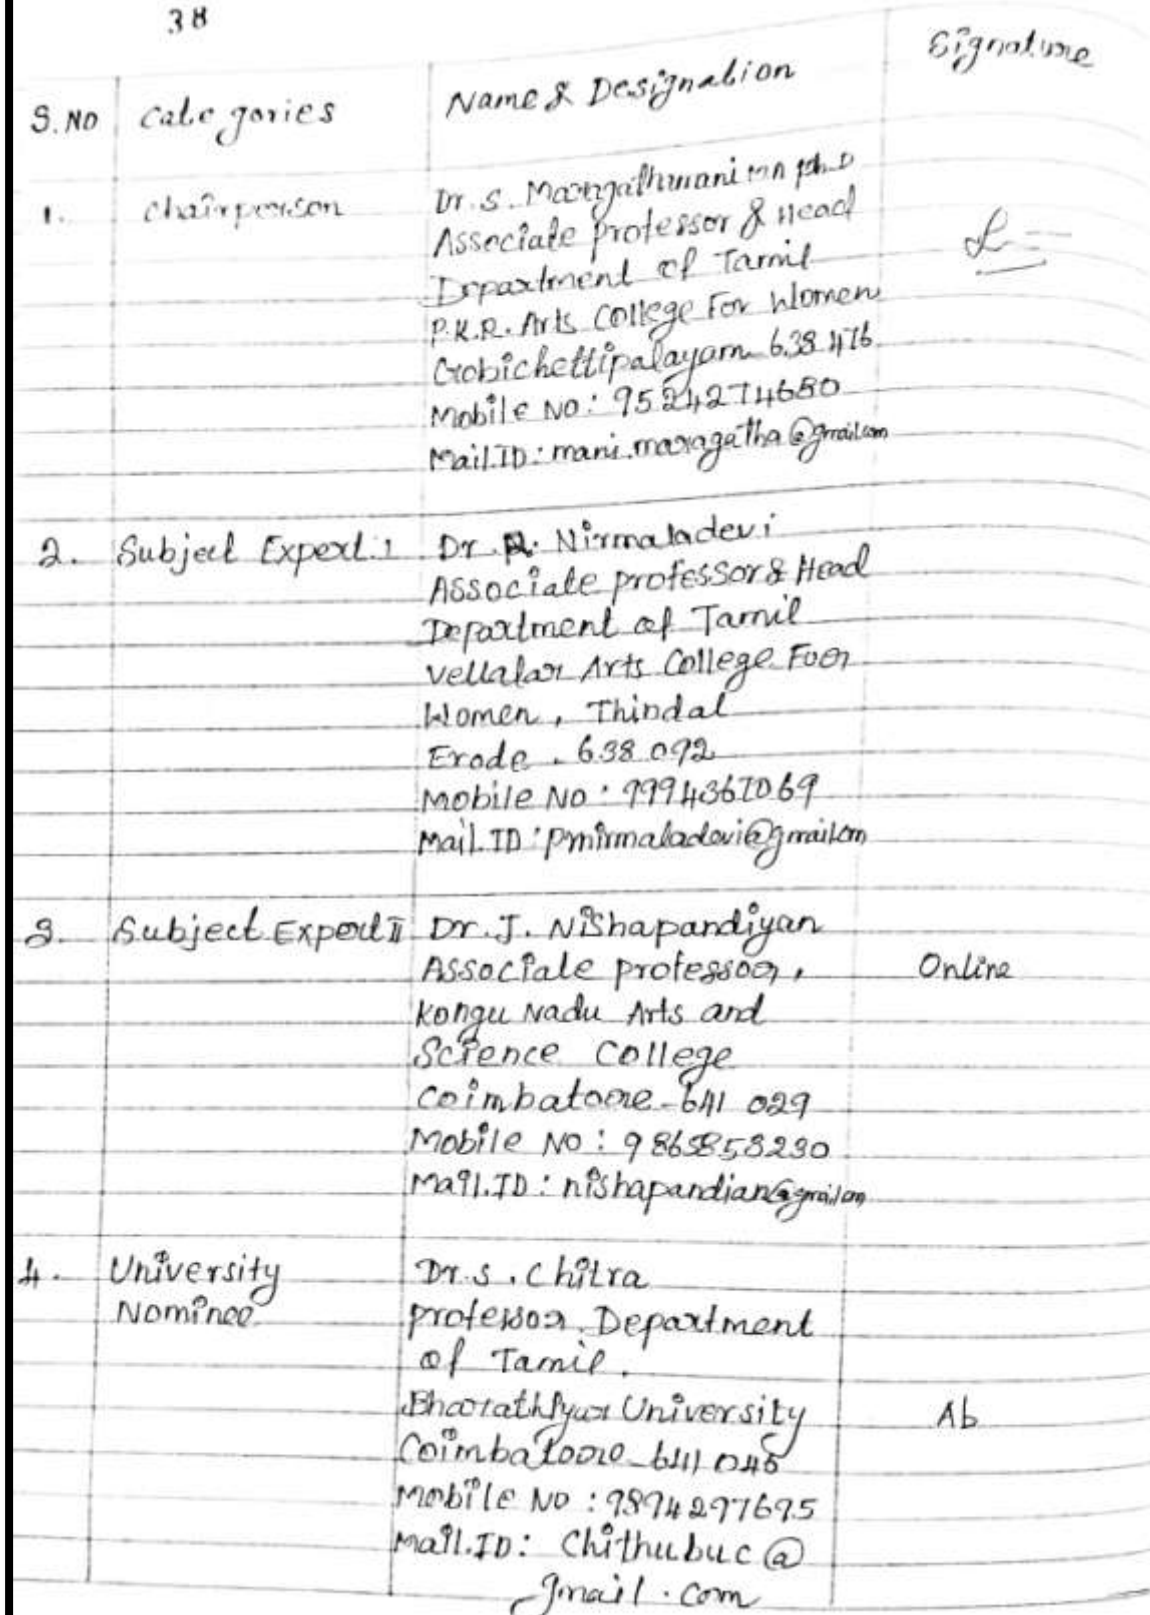 38
S.NO Categories Name & Designation Signature
1. Chairperson Dr. S. M.A ph.D
Associate professor & Head
Department of Tamil
P.K.R. Arts College For Women
Gobichettipalayam 638 476
Mobile No: 9524274680
Mail.ID: mani.maragatha@gmail.com
2. Subject Expert.I Dr. R. Nirmaladevi
Associate professor & Head
Department of Tamil
Vellalar Arts College For
Women, Thindal
Erode. 638 092
Mobile No: 9994367069
Mail.ID: pmirmaladevi@gmail.com
3. Subject Expert II Dr. J. Nishapandiyan
Associate professor, Online
Kongu Nadu Arts and
Science College
Coimbatore-641 029
Mobile No: 9865853230
Mail.ID: nishapandian@gmail.com
4. University Dr. S. Chitra
Nominee professor, Department
of Tamil.
Bharathiyar University Ab
Coimbatore-641 045
Mobile No: 9894297695
Mail.ID: Chithubuc@
gmail.com